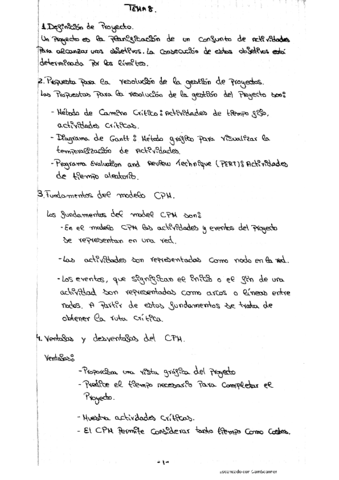 TEMA 8.
1. Definición de Proyecto.
Un Proyecto es la Planificación de un conjunto de actividades
Para alcanzar unos objetivos. La consecución de estos objetivos está
determinado Por los límites.
2. Propuesta Para la resolución de la gestión de Proyectos.
Las Propuestas Para la resolución de la gestión del Proyecto son:
- Método de Camino Crítico: Actividades de tiempo fijo,
actividades críticas.
- Diagrama de Gantt: Método gráfico Para visualizar la
temporización de actividades.
- Programa Evaluation and Review Technique (PERT): Actividades
de tiempo aleatorio.
3. Fundamentos del modelo CPM.
Los fundamentos del model CPM son:
- En el modelo CPM las actividades y eventos del Proyecto
se representan en una red.
- Las actividades son representadas como nodo en la red.
- Los eventos, que significan el inicio o el fin de una
actividad son representados como arcos o líneas entre
nodos. A Partir de estos fundamentos se trata de
obtener la ruta crítica.
4. Ventajas y desventajas del CPM.
Ventajas:
- Proporciona una vista gráfica del Proyecto
- Predice el tiempo necesario Para completar el
Proyecto.
- Muestra actividades críticas.
- El CPM Permite considerar tanto tiempo como costes.
- 1 -
Escaneado con CamScanner